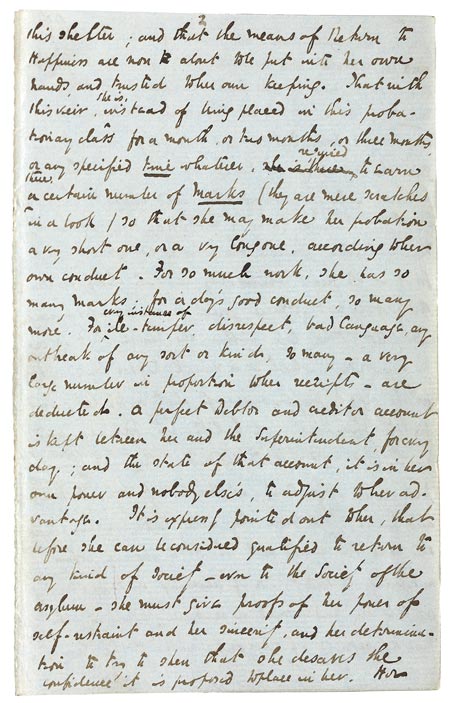 3
this shelter; and that the means of Return to
Happiness are now about to be put into her own
hands, and trusted to her own keeping. That with
this view, she is, instead of being placed in this proba-
tionary class for a month, or two months, or three months,
or any specified time whatever, required to earn
there
a certain number of Marks (they are mere scratches
in a book) so that she may make her probation
a very short one, or a very long one, according to her
own conduct. For so much work, she has so
many marks; for a day's good conduct, so many
more. For every instance of ill-temper, disrespect, bad language, any
outbreak of any sort or kind, so many – a very
large number in proportion to her receipts – are
deducted. A perfect Debtor and creditor account
is kept between her and the Superintendent, for every
day; and the state of that account, it is in her
own power and nobody else's, to adjust to her ad-
vantage. It is expressly pointed out to her, that
before she can be considered qualified to return to
any kind of society – even to the Society of the
asylum – she must give proofs of her power of
self-restraint and her sincerity, and her determina-
tion to try to shew that she deserves the
confidence it is proposed to place in her. Her